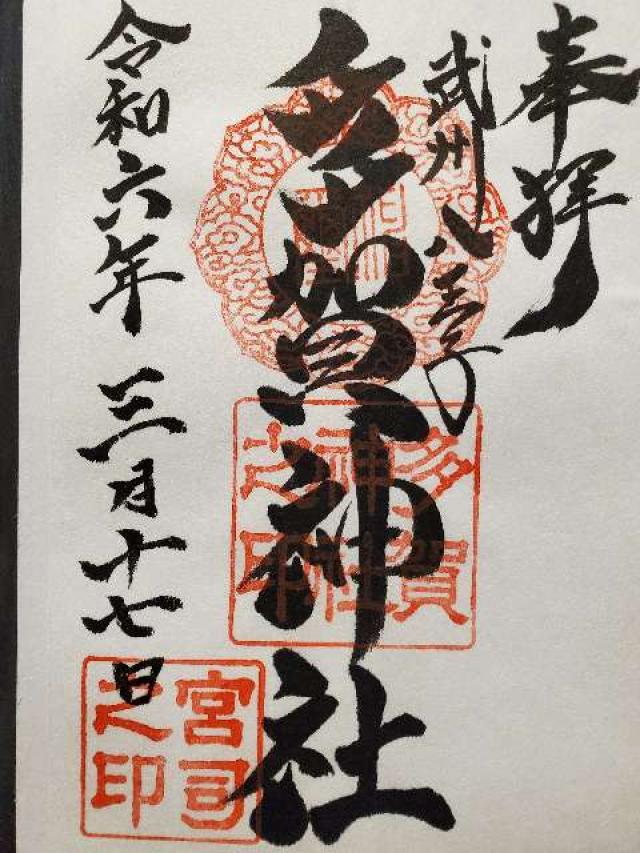 奉拝
武州八王子
多賀神社
令和六年 三月十七日
多賀
神社
之印
宮司
之印